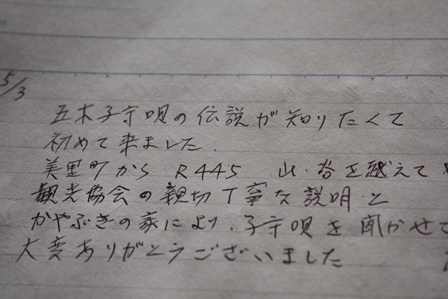 5/3
五木子守唄の伝説が知りたくて
初めて来ました.
美里町から R445 山・谷を越えて
観光協会の親切丁寧な説明と
かやぶきの家により、子守唄を聞かせて
大変ありがとうございました